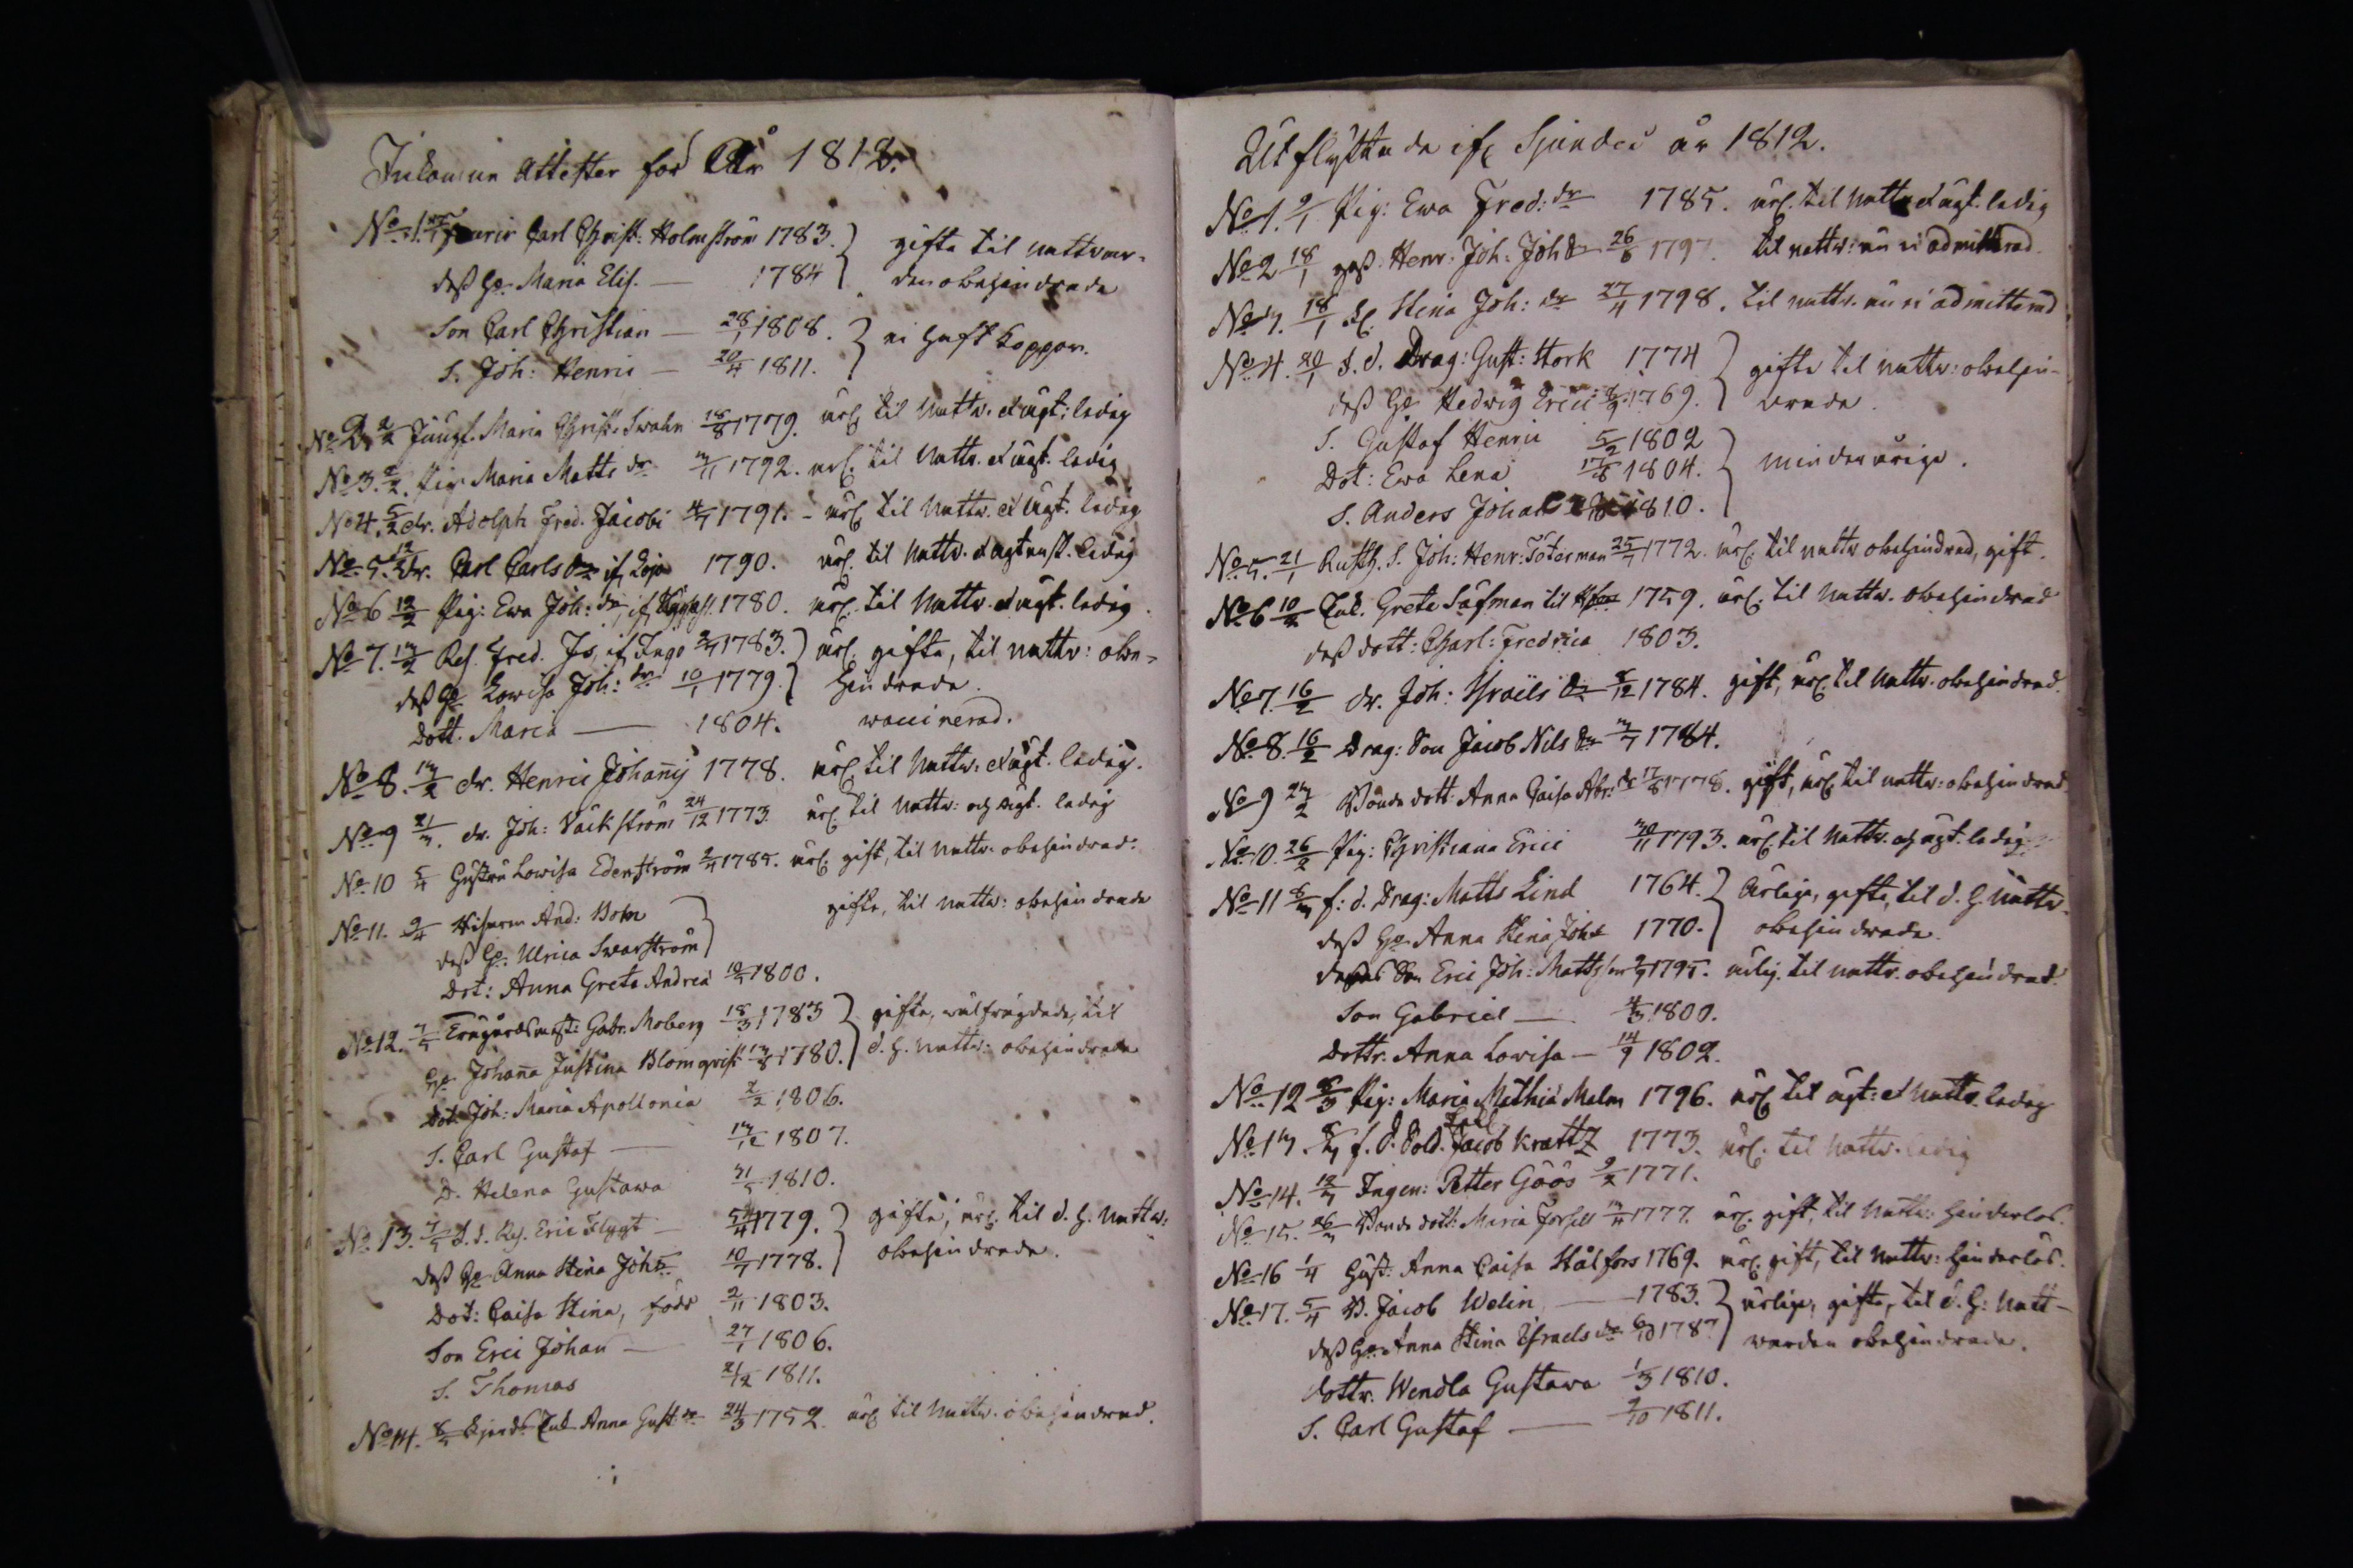 Inkomne Attester för År 1812.
No 1. Carl Christ: Holmström 1783. } gifte til nattvar-
dess H. Maria Elis. — 1784 } den obehindrade
Son Carl Christian — 28/1 1808. } ei haft koppor.
S. Joh: Henric — 20/4 1811. }
No 2. 2/2 Jungf. Maria Christ. Swahn 18/8 1779. ärl. til Nattv. et ägt: ledig
No 3. 2/2. Pig. Maria Matts dr 1792. ärl. til Nattv. et ägt. ledig
No 4. 5/2 dr. Adolph Fred. Jacobi 4/7 1791. – ärl. til Nattv. et ägt. ledig
No 5. 12/2 dr. Carl Carls if. Lojo 1790. ärl. til Nattv. ledig
No 6 12/2 Pig: Ewa Joh: dr if. 1780. ärl. til Nattv. et ägt. ledig.
No 7. 13/2 Ref. Fred. if. Ingo 1783. } ärl. gifte, til nattv: obe-
dess H. Lowisa Joh: dr 10/1 1779. } hindrade.
Dott. Maria — 1804. waccinerad.
No 8. 13/2 dr. Henric Johannis 1778. ärl. til Nattv. et ägt. ledig.
No 9 21/3. dr. Joh: Väckström 24/12 1773. ärl. til Nattv: och ägt. ledig
No 10 5/4 Hustru Lowisa Edenström 1785. ärl. gift, til nattv. obehindrad.
No 11. 9/4 And: Bohm } gifte, til nattv: obehindrade
dess H. Ulrica Swarström }
Dot: Anna Greta Andreæ 1800.
No 12. 7/5 Trägårdsmäst: Gabr. Moberg 18/3 1783 } gifte, wälfrägdade, til
H. Johanna Justina Blomqvist 13/8 1780. } d. h. nattv: obehindrade
Dot. Joh: Maria Apollonia 2/2 1806.
S. Carl Gustaf — 13/12 1807.
D. Helena Gustawa 31/5 1810.
No 13. 7/5 f. d. Ref. Eric Flygt — 1779. } gifte, ärl. til d. h. Nattv:
dess H. Anna Stina Joh: dr 10/7 1778. } obehindrade.
Dot: Caisa Stina, född 2/11 1803.
Son Eric Johan — 27/1 1806.
S. Thomas 21/12 1811.
No 14. 8/5 Enk. Anna Gust: dr 24/3 1752. ärl. til Nattv. obehindrad.
Utflyttade if. Sjundeå år 1812.
No 1. 9/1 Pig: Ewa Fred: dr 1785. ärl. til nattv. et ägt. ledig
No 2 18/1 goss. Henr. Joh: Joh: 26/8 1797. til nattv: än ei admitterad.
No 3. 18/1 Fl. Stina Joh: dr 27/4 1798. til nattv. än ei admitterad
No 4. 20/1 f. d. Drag: Gust: Stork 1774 } gifte til nattv: obehin-
dess H. Hedwig Erici 1769. } drade.
S. Gustaf Henric 5/2 1802 }
Dot: Ewa Lena 17/8 1804. } minderårige.
S. Anders Johan 1810. }
No 5. 21/1 Rusth. S. Joh: Henr: Töterman 25/7 1772. ärl. til nattv obehindrad, gift.
No 6 10/2 Enk. Greta Säfman til 1759. ärl. til Nattv. obehindrad
dess dott: Charl: Fredrica 1803.
No 7. 16/2 dr. Joh: Israels 1784. gift, ärl. til Nattv. obehindrad.
No 8. 16/2 Drag: Son Jacob Nils 1784.
No 9 23/2 Bonde dott: Anna Caisa Abr: dr 17/8 1778. gift, ärl. til nattv: obehindrad
No 10. 26/2 Pig: Christiana Erici 30/11 1793. ärl. til Nattv. och ägt. ledig
No 11 f: d. Drag: Matts Lind 1764. } Ärlige, gifte, til d. h. Nattv.
dess H. Anna Stina Joh: dr 1770. } obehindrade.
Son Eric Joh: Mattsson 1795. ärlig. til nattv. obehindrad.
Son Gabriel — 4/3 1800.
Dottr. Anna Lowisa — 14/9 1802.
No 12 Pig: Maria Mathiæ Malm 1796. ärl. til ägt: et Nattv. ledig
No 13. f. d. Sold. Jacob Krattz 1773. ärl. til Nattv. ledig
No 14. 12/3 Ingen: Petter Göös 9/2 1771.
No 15. 26/3 Bonde dott: Maria Forsell 1777. ärl. gift, til Nattv: hinderlös.
No 16 1/4 Hust: Anna Caisa Stålfors 1769. ärl. gift, til Nattv: hinderlös.
No 17. 5/4 B. Jacob Welin — 1783. } ärlige, gifte, til d. h: natt-
dess H. Anna Stina Israels dr 6/10 1787 } warden obehindrade.
dottr. Wendla Gustawa 1/3 1810.
S. Carl Gustaf — 9/10 1811.